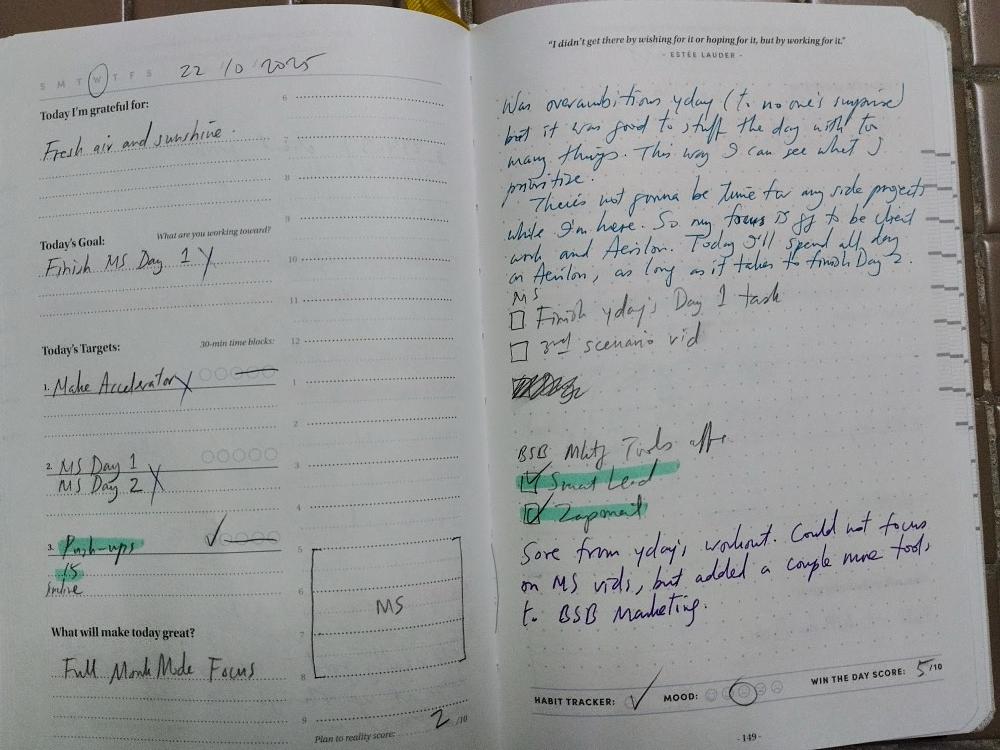 S M T W T F S 22 / 10 2025
Today I'm grateful for:
Fresh air and sunshine.
Today's Goal: What are you working toward?
Finish MS Day 1 X
Today's Targets: 30-min time blocks:
1. Make Accelerator X
2. MS Day 1
MS Day 2 X
3. Push-ups ✓
15
What will make today great?
Full Monk Mode Focus
6
7
8
9
10
11
12
1
2
3
4
5
6
MS
7
8
9
Plan to reality score: 2 /10
"I didn't get there by wishing for it or hoping for it, but by working for it."
- ESTÉE LAUDER -
Was overambitious yday (to no one's surprise)
but it was good to stuff the day with too
many things. This way I can see what I
prioritize.
There's not gonna be time for my side projects
while I'm here. So my focus is to be client
work and. Today I'll spend all day
on, as long as it takes to finish Day 2.
MS
Finish yday's Day 1 task
2nd scenario vid
BSB Mktg Tools
Smart Lead
Zapmail
Sore from yday's workout. Could not focus
on MS vids, but added a couple more tools
to BSB Marketing.
HABIT TRACKER: ✓ MOOD: WIN THE DAY SCORE: 5 /10
- 149 -